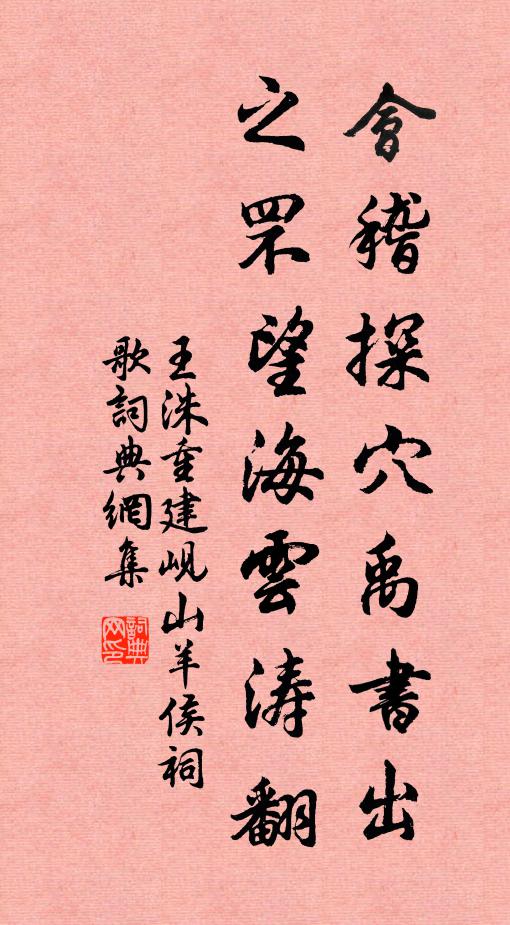 會稽探穴禹書出
之罘望海雲濤翻
王洙重建峴山羊侯祠
歌詞典網集
詞典网印